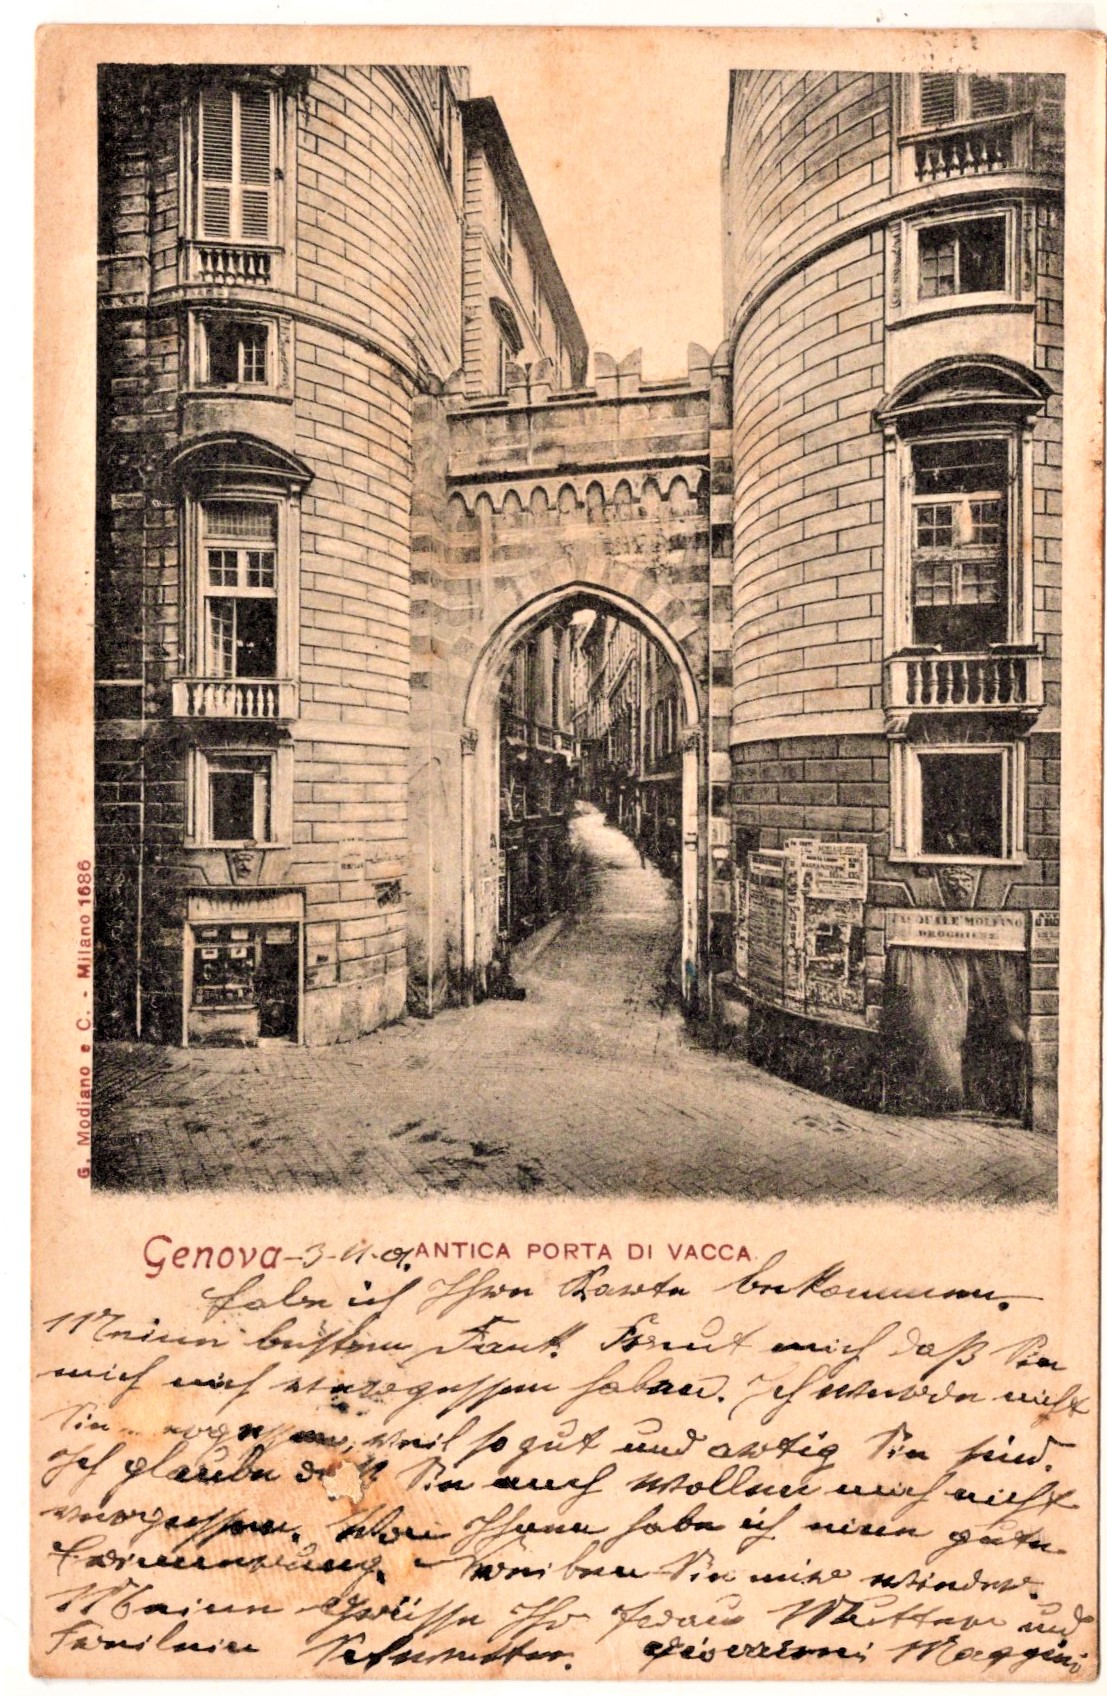 G. Modiano e C. - Milano 1686
PASQUALE MOLFINO
DROGHIERE
Genova -3-11-01. ANTICA PORTA DI VACCA
Habe ich Ihre Karte bekommen.
Meinen besten Dank. Freut mich daß Sie
mich nich vergessen haben. Ich werde nicht
Sie vergessen, weil so gut und artig Sie sind.
Ich glaube daß Sie auch wollen mich nicht
vergessen. Von Ihnen habe ich eine gute
Erinnerung. Schreiben Sie mir wieder.
Meine Grüsse Ihr Frau Mutter und
Freilein Schwester. Giovanni Maggini